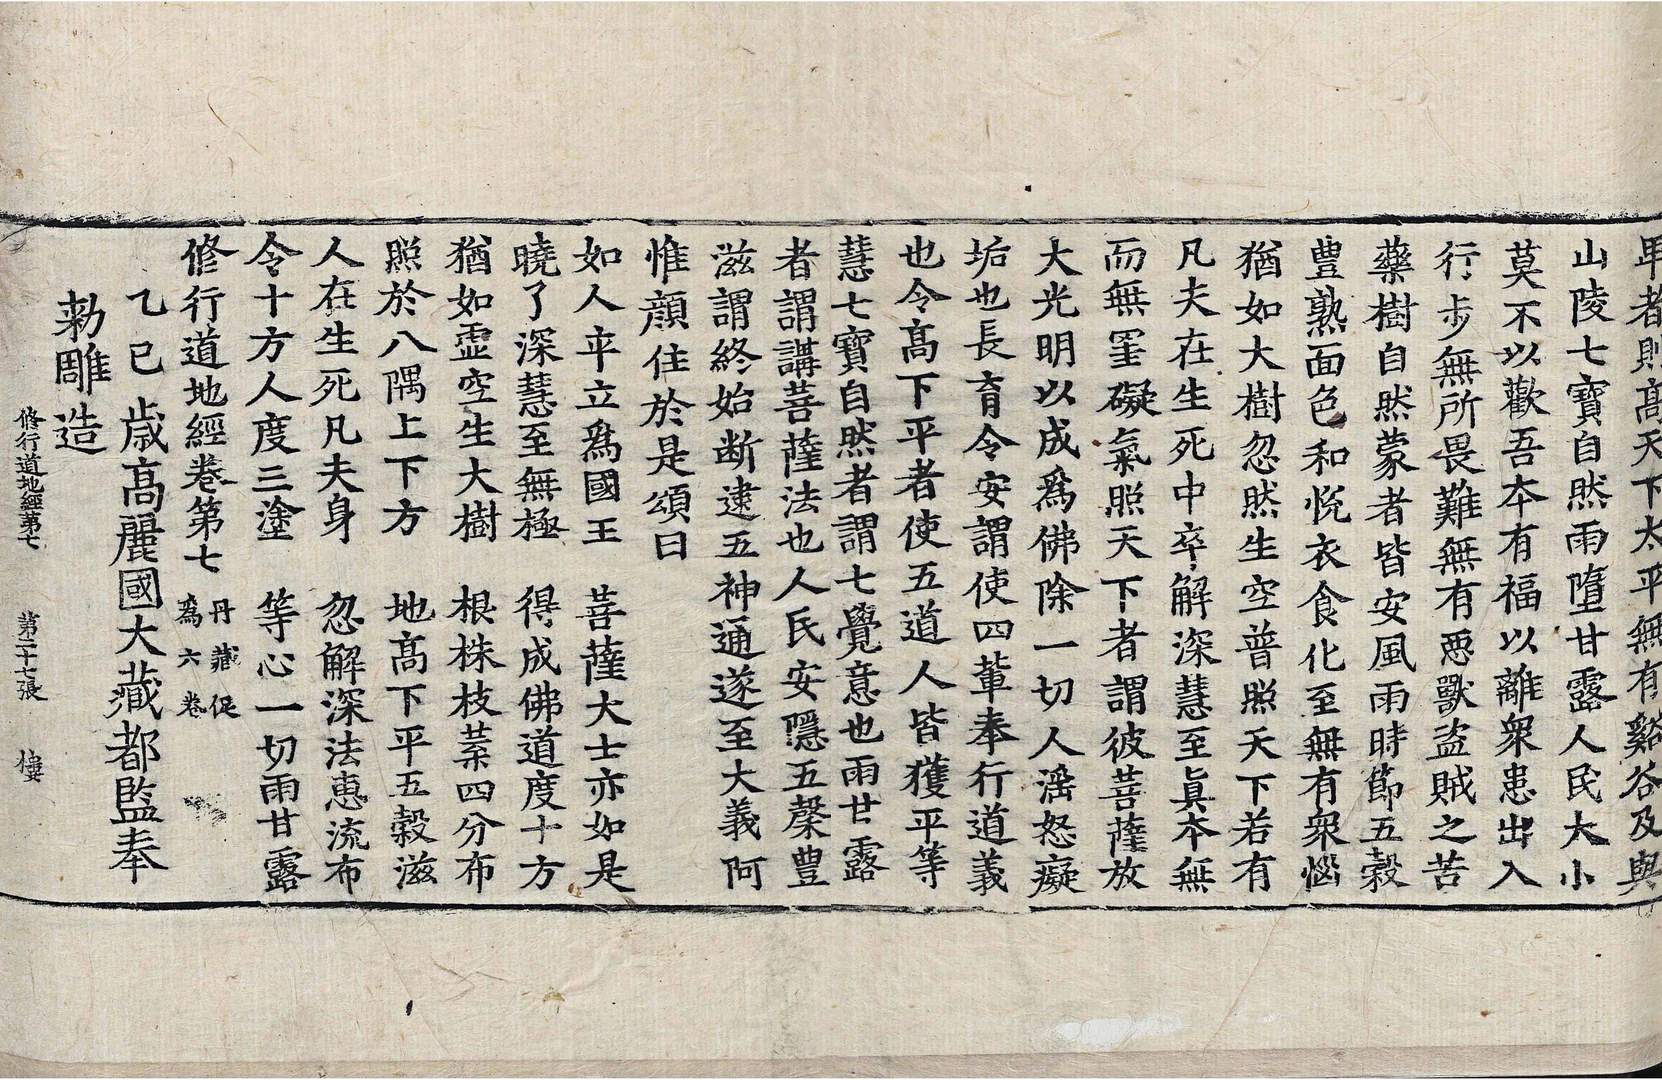 卑者則高天下太平無有谿谷及與
山陵七寶自然雨墮甘露人民大小
莫不以歡吾本有福以離衆患出入
行步無所畏難無有惡獸盜賊之苦
藥樹自然蒙者皆安風雨時節五穀
豊熟面色和悅衣食化至無有衆惱
猶如大樹忽然生空普照天下若有
凡夫在生死中卒解深慧至眞本無
而無罣礙氣照天下者謂彼菩薩放
大光明以成爲佛除一切人滛怒癡
垢也長育令安謂使四輩奉行道義
也令高下平者使五道人皆獲平等
慧七寶自然者謂七覺意也雨甘露
者謂講菩薩法也人民安隱五穀豊
滋謂終始斷逮五神通遂至大義阿
惟顔住於是頌曰
如人卒立爲國王　菩薩大士亦如是
曉了深慧至無極　得成佛道度十方
猶如虛空生大樹　根株枝葉四分布
照於八隅上下方　地高下平五穀滋
人在生死凡夫身　忽解深法惠流布
令十方人度三塗　等心一切雨甘露
修行道地經卷第七　丹藏促爲六卷
乙巳歲高麗國大藏都監奉
勅雕造
修行道地經第七　第二十七張　樓